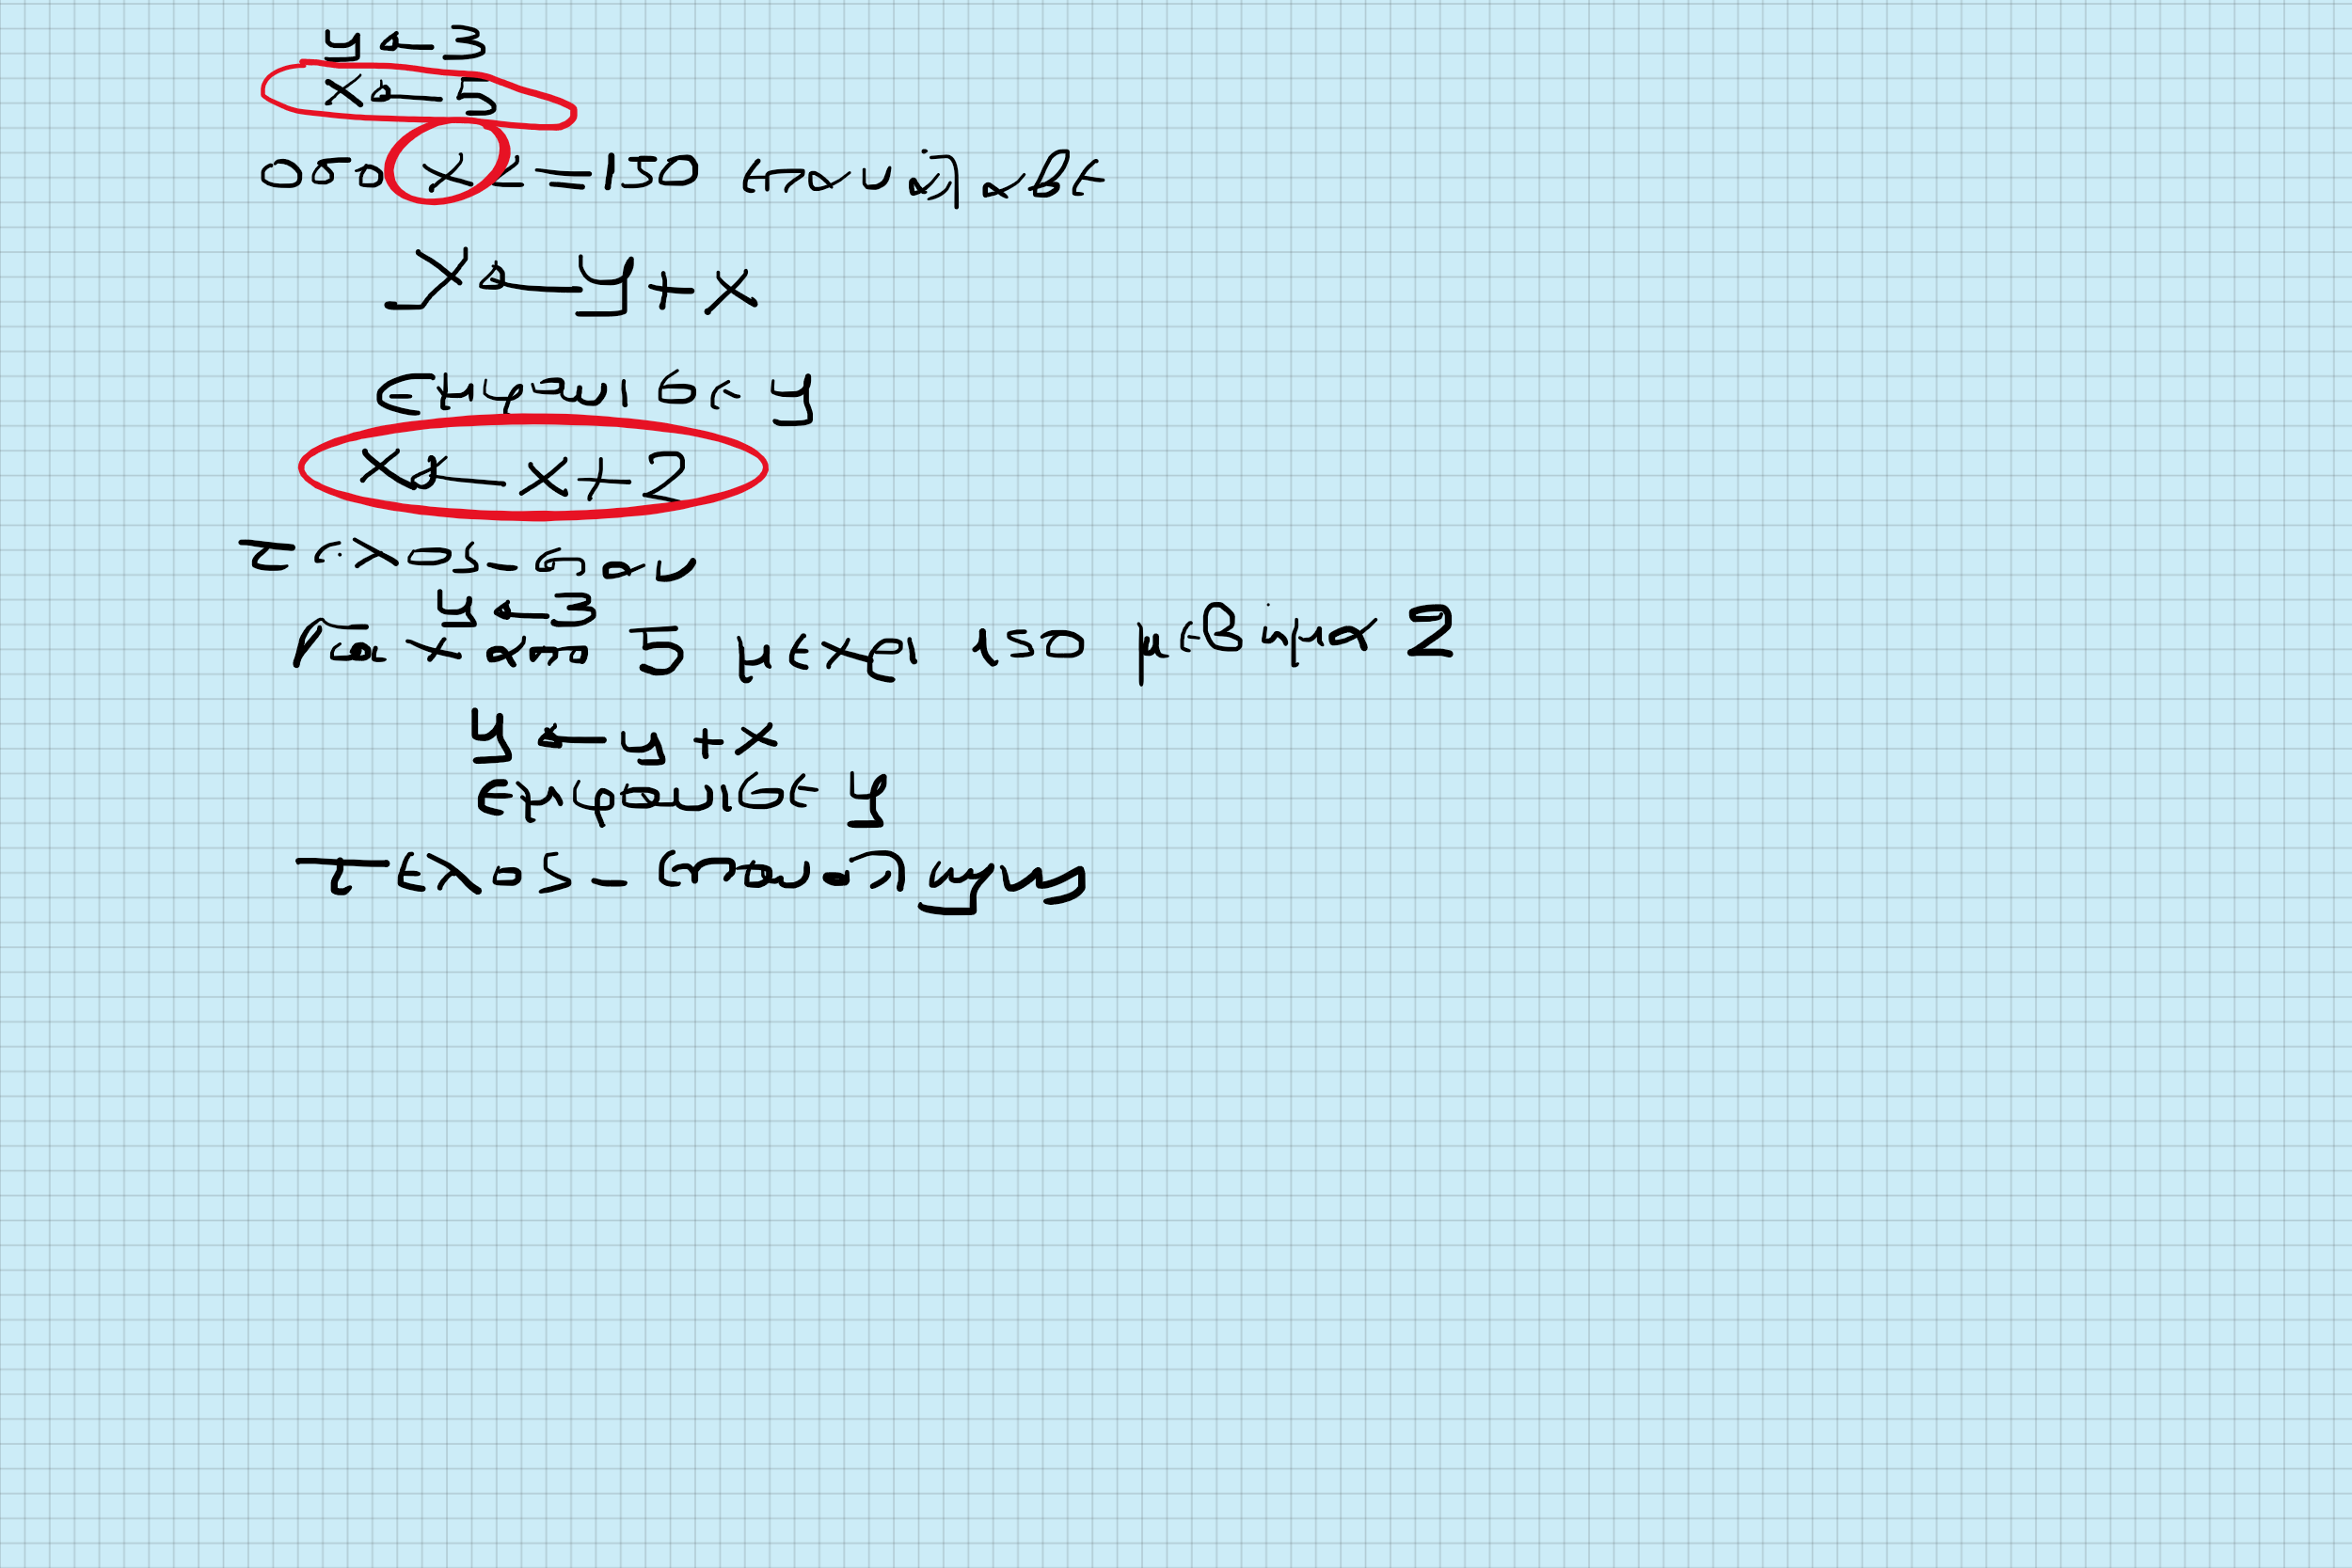 y ← 3
x ← 5
οσο x <= 150 επαναλαβε
y ← y + x
Εμφανισε y
x ← x + 2
τελος_επαν
y ← 3
Για x απο 5 μεχρι 150 με βημα 2
y ← y + x
Εμφανισε y
Τελος_επαναληψης